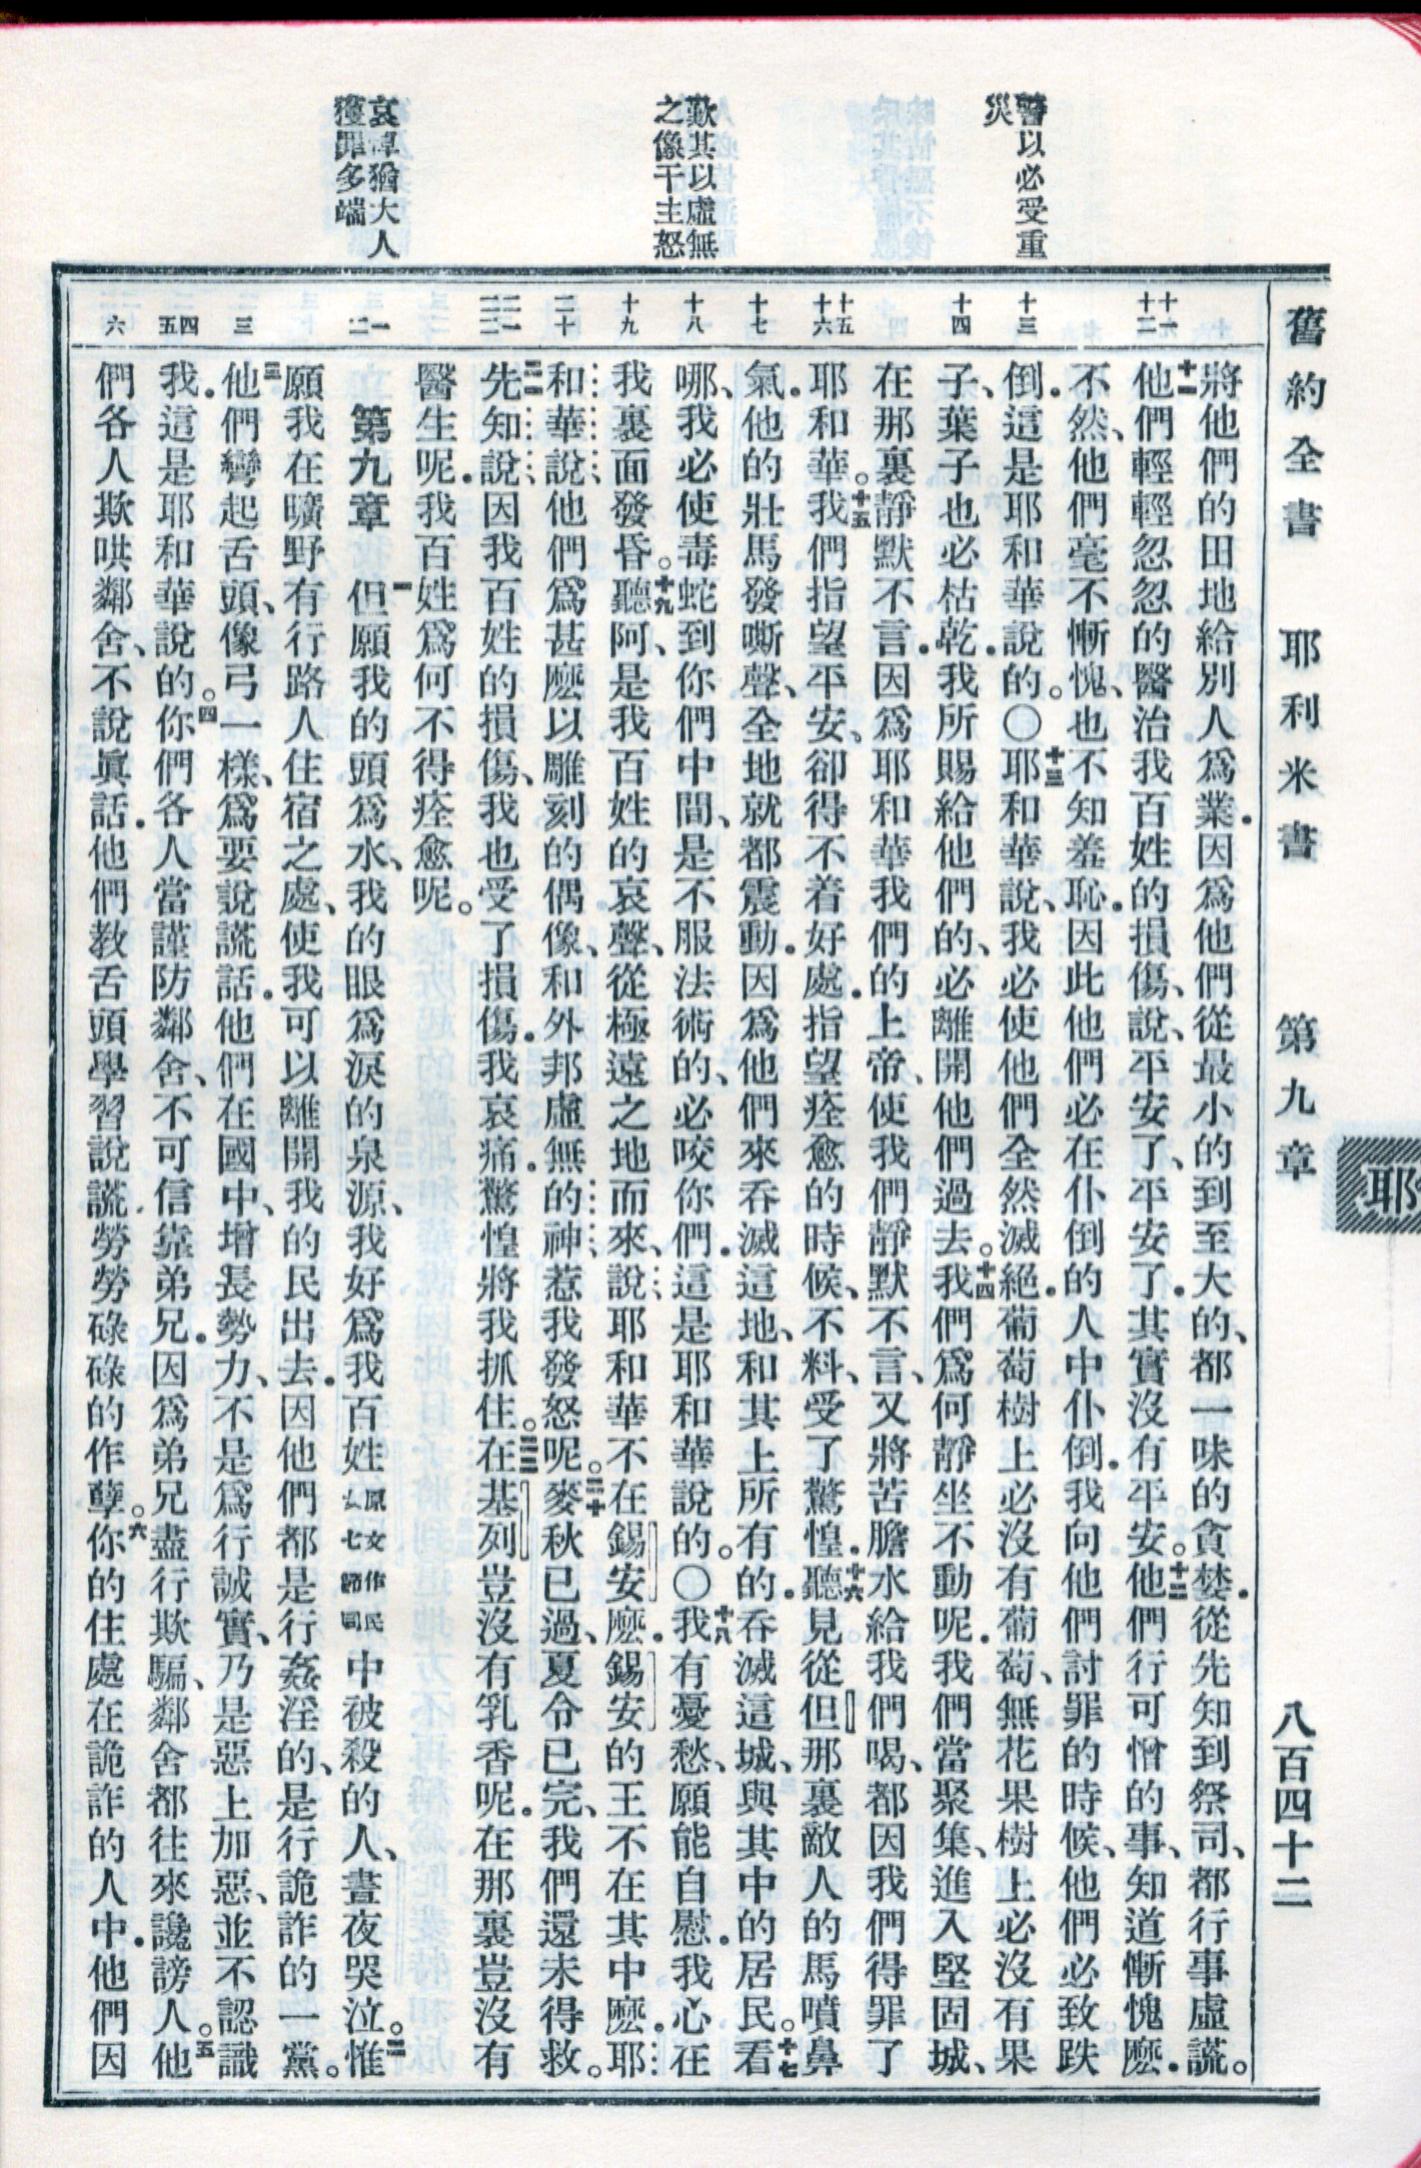 舊約全書 耶利米書 第九章 八百四十二
耶
警以必受重
災
歎其以虛無
之像干主怒
哀悼猶大人
獲罪多端
十一
十二
十三
十四
十五
十六
十七
十八
十九
二十
二一
二二
一
二
三
四
五
六
將他們的田地給別人爲業．因爲他們從最小的到至大的、都一味的貪婪．從先知到祭司、都行事虛謊。
十一他們輕輕忽忽的醫治我百姓的損傷、說、平安了、平安了．其實沒有平安。十二他們行可憎的事、知道慚愧麽．
不然、他們毫不慚愧、也不知羞恥．因此他們必在仆倒的人中仆倒．我向他們討罪的時候、他們必致跌
倒．這是耶和華說的。〇十三耶和華說、我必使他們全然滅絕．葡萄樹上必沒有葡萄、無花果樹上必沒有果
子、葉子也必枯乾．我所賜給他們的、必離開他們過去。十四我們爲何靜坐不動呢．我們當聚集、進入堅固城、
在那裏靜默不言．因爲耶和華我們的上帝、使我們靜默不言、又將苦膽水給我們喝、都因我們得罪了
耶和華。十五我們指望平安、卻得不着好處．指望痊愈的時候、不料、受了驚惶．十六聽見從但那裏敵人的馬噴鼻
氣．他的壯馬發嘶聲、全地就都震動．因爲他們來吞滅這地、和其上所有的．吞滅這城、與其中的居民。十七看
哪、我必使毒蛇到你們中間、是不服法術的、必咬你們．這是耶和華說的。〇十八我有憂愁、願能自慰．我心在
我裏面發昏。十九聽阿、是我百姓的哀聲、從極遠之地而來、說、耶和華不在錫安麽．錫安的王不在其中麽．耶
和華說、他們爲甚麽以雕刻的偶像、和外邦虛無的神、惹我發怒呢。二十麥秋已過、夏令已完、我們還未得救。
二一先知說、因我百姓的損傷、我也受了損傷．我哀痛．驚惶將我抓住。二二在基列豈沒有乳香呢．在那裏豈沒有
醫生呢．我百姓爲何不得痊愈呢。
第九章 一但願我的頭爲水、我的眼爲淚的泉源、我好爲我百姓原文作民女七節同中被殺的人、晝夜哭泣。二惟
願我在曠野有行路人住宿之處、使我可以離開我的民出去．因他們都是行姦淫的、是行詭詐的一黨。
三他們彎起舌頭、像弓一樣、爲要說謊話．他們在國中、增長勢力、不是爲行誠實、乃是惡上加惡、並不認識
我．這是耶和華說的。四你們各人當謹防鄰舍、不可信靠弟兄．因爲弟兄盡行欺騙、鄰舍都往來讒謗人。五他
們各人欺哄鄰舍、不說眞話．他們教舌頭學習說謊、勞勞碌碌的作孽。六你的住處在詭詐的人中．他們因